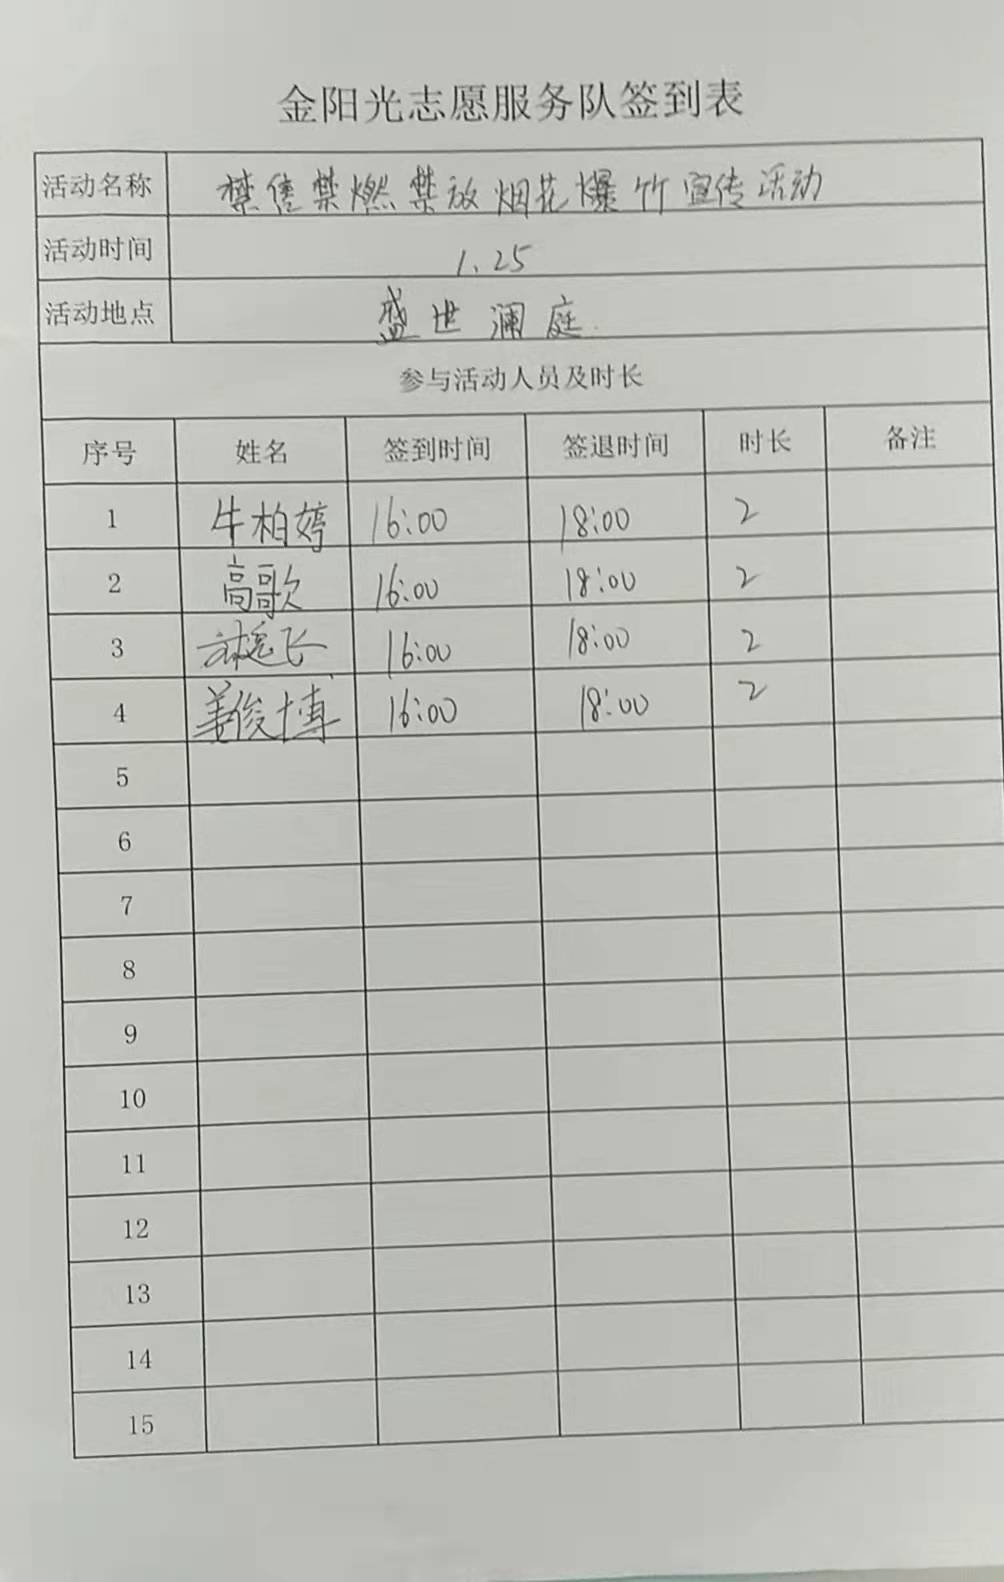 金阳光志愿服务队签到表
活动名称 禁售禁燃禁放烟花爆竹宣传活动
活动时间 1.25
活动地点 盛世澜庭
参与活动人员及时长
序号 姓名 签到时间 签退时间 时长 备注
1 牛柏婷 16:00 18:00 2
2 高歌 16:00 18:00 2
3 16:00 18:00 2
4 姜俊博 16:00 18:00 2
5
6
7
8
9
10
11
12
13
14
15